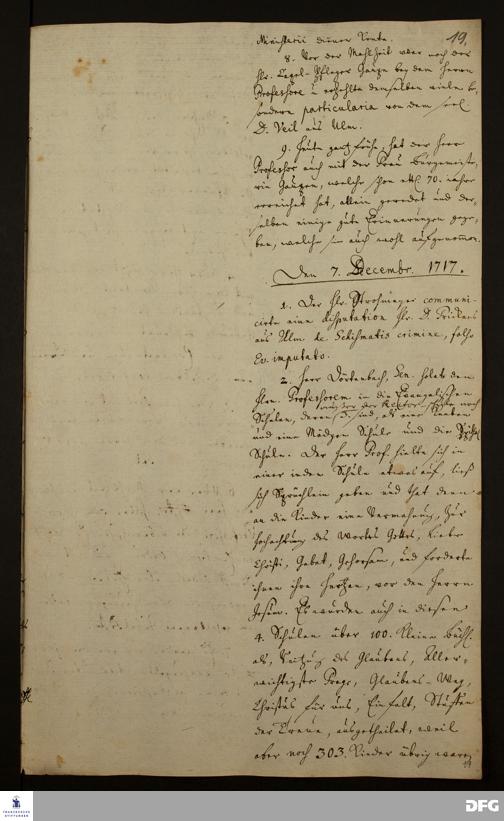 19.
Ministerii dimen Leute.
8. Vor der Mahlzeit war noch der
Hr. Tegel-Pfleger Gaupp bey dem Herrn
Professore u. erzehlte demselben viele be-
sondere particularia von dem seel.
D. Veil aus Ulm.
9. Heute gantz frühe, hat der Herr
Professor auch mit der Frau Burgemeiste-
rin Gaupen, welche schon etl. 70. Jahre
erreichet hat, allein geredet und der-
selben einige gute Erinnerungen gege-
ben, welche sie auch wohl aufgenommen.
Den 7. Decembr. 1717.
1. Der Hr. Strohmeyer communi-
cirte eine disputation Hr. D. Frickens
aus Ulm de Schismatis crimine, falso
Ev. imputato.
2. Herr Dörtenbach, Sen. holete den
Hrn. Professorem in die Evangelischen
Schulen, deren 3. sind, als eine Knaben
und eine Mädgen Schule und die
Schule. Der Herr Prof. hielte sich in
einer ieden Schule etwas auf, ließ
sich Sprüchlein geben und that denn
an die Kinder eine Vermahnung, zur
Hochachtung des Wortes Gottes, Liebe
Christi, Gebet, Gehorsam, und forderte
ihnen ihre Hertzen, vor den Herrn
Jesum. Es wurden auch in diesen
4. Schulen über 100. kleine Büchl.
als, des Glaubens, Aller-
wichtigste Frage, Glaubens-Weg,
Christus für uns, Einfalt, Stufen
der Treue, ausgetheilet, weil
aber noch 303. Kinder übrig waren
FRANCKESCHE STIFTUNGEN
DFG